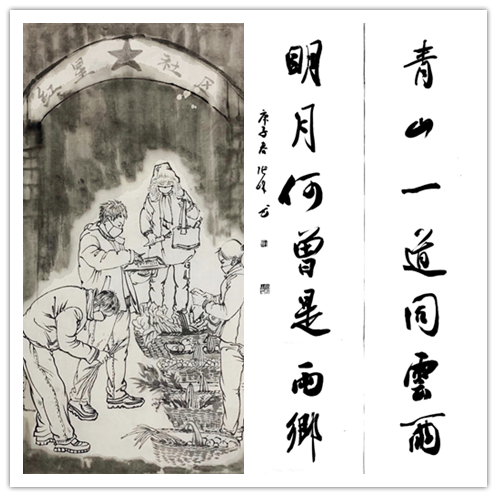 红星社区
青山一道同雲雨
明月何曾是兩鄉
庚子春